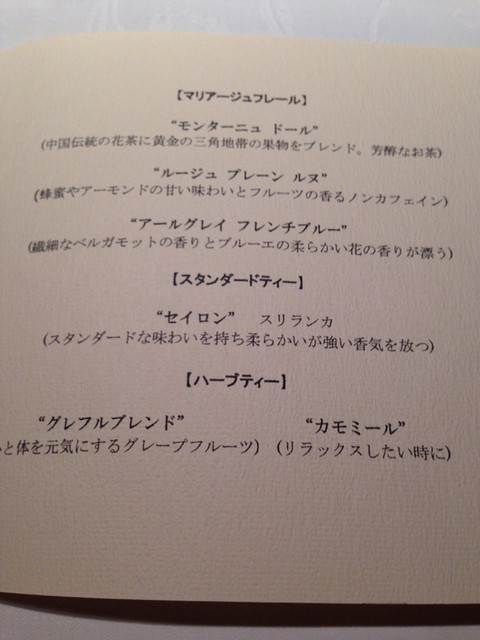 【マリアージュフレール】
“モンターニュ ドール”
(中国伝統の花茶に黄金の三角地帯の果物をブレンド。芳醇なお茶)
“ルージュ プレーン ルヌ”
(蜂蜜やアーモンドの甘い味わいとフルーツの香るノンカフェイン)
“アールグレイ フレンチブルー”
(繊細なベルガモットの香りとブルーエの柔らかい花の香りが漂う)
【スタンダードティー】
“セイロン” スリランカ
(スタンダードな味わいを持ち柔らかいが強い香気を放つ)
【ハーブティー】
“グレフルブレンド” “カモミール”
と体を元気にするグレープフルーツ) (リラックスしたい時に)